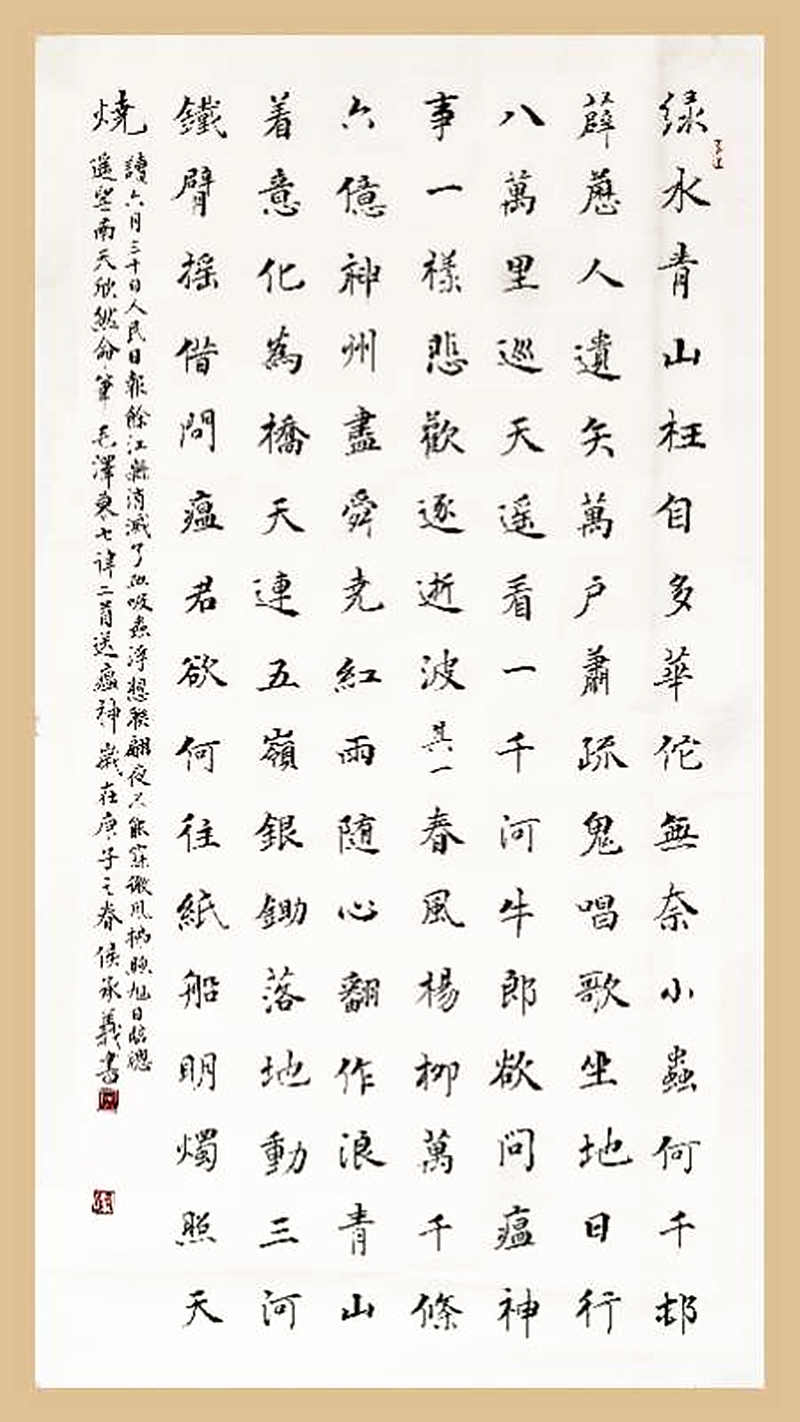 绿水青山枉自多華佗無奈小蟲何千邨
薜荔人遺矢萬户蕭疏鬼唱歌坐地日行
八萬里巡天遥看一千河牛郎欲問瘟神
事一樣悲歡逐逝波其一春風楊柳萬千條
六億神州盡舜尭紅雨随心翻作浪青山
着意化為橋天連五嶺銀鋤落地動三河
鐵臂摇借問瘟君欲何往紙船明燭照天
燒
讀六月三十日人民日報餘江縣消滅了血吸蟲浮想聯翩夜不能寐微風拂煦旭日臨窗
遥望南天欣然命筆毛澤東七律二首送瘟神歲在庚子之春侯承義書